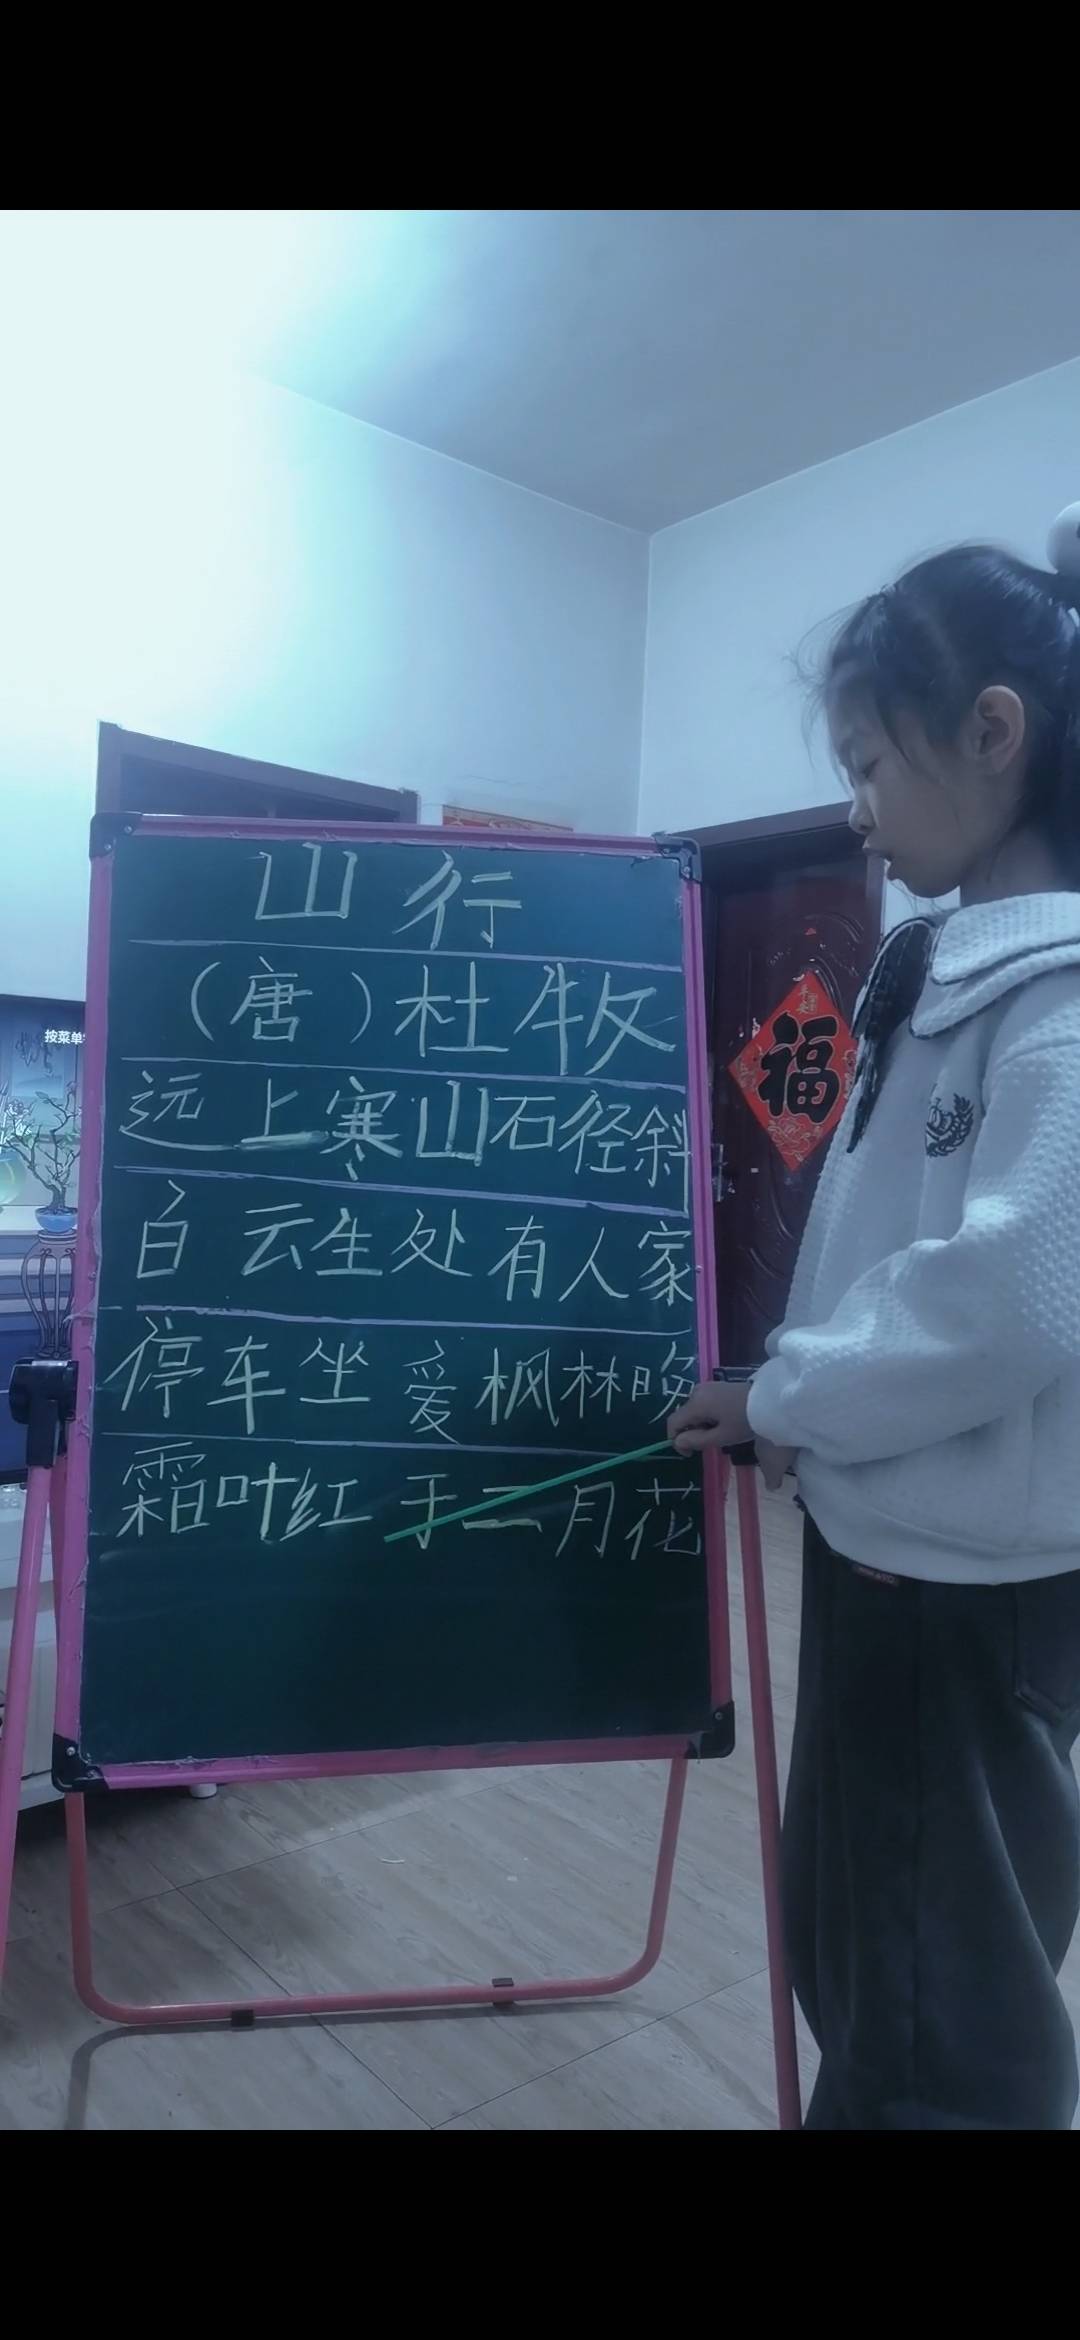 山行
（唐）杜牧
远上寒山石径斜
白云生处有人家
停车坐爱枫林晚
霜叶红于二月花
福
按菜单